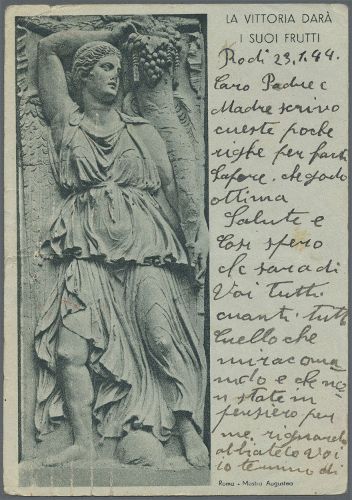 LA VITTORIA DARÀ
I SUOI FRUTTI
Rodi 23.1.44.
Caro Padre e
Madre scrivo
cueste poche
righe per farti
Sapere. che godo
ottima
Salute e
Cosi spero
che sara di
Voi tutti
cuanti. tutto
Cuello che
miracoma
ndo e che no
n state in
pensiero per
me. riguardo
abbiatelo voi
io temmo di
Roma - Mostra Augustea